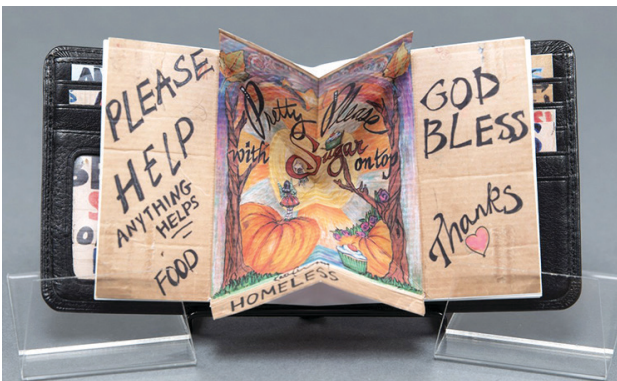 PLEASE
HELP
ANYTHING
HELPS
FOOD
Pretty Please
with Sugar on top
HOMELESS
GOD
BLESS
Thanks